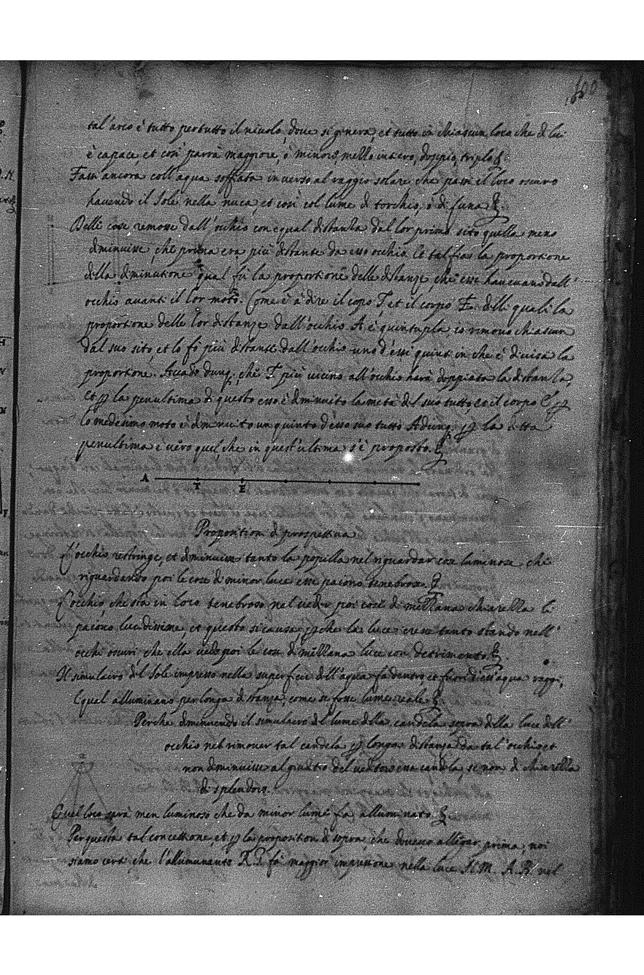 100
tal'arco è tutto per tutto il nuvolo, dove si genera, et tutto in chiascun loco che di lui
è capace, et così parrà maggiore, ò minore, mello in acro, doppio, triplo &
Fassi ancora coll'aqua soffiata inverso al raggio solare che passi il loco oscuro
havendo il Sole nella nuca, et così col lume di torchio, ò di luna &
Delle cose remosse dall'occhio con equal distantia dal lor primo sito quella meno
diminuisce, che prima era più distante da esso occhio, e tal fia la proportione
della diminutione qual fu la proportione delle distanze che esse havevano dall'
occhio avanti il lor moto. Come è à dire il corpo T et il corpo E. delli quali la
proportione delle lor distanze dall'occhio A è quintupla io rimovo chiascun
dal suo sito et lo fo più distante dall'occhio uno d'essi quinti in che è divisa la
proportione. Accade dunq. che T più vicino all'occhio harà doppiato la distantia,
et la penultima di questo esso è diminuito la metà del suo tutto, et il corpo E
lo medesimo moto è diminuito un quinto d'esso suo tutto Adunq. la detta
penultima è vero quel, che in quest'ultima s'è proposto. &
A T E
Propositioni di prospettiva
L'occhio restringe, et diminuisce tanto la popilla nel riguardar cosa luminosa, che
riguardando poi le cose di minor luce esse paiono tenebrose. &
L'occhio che sta in loco tenebroso nel veder poi cose di mezzana chiarezza li
paiono lucidissime, et questo si causa che la luce cresce tanto stando nell'
occhi oscuri che ella vede poi le cose di mezzana luce con detrimento. &
Il simulacro del Sole impresso nella superficie dell'aqua fa dentro et fuori d'essa aqua raggi,
li quel alluminano per longa distanza, come si fosse lume reale. &
Perche diminuendo il simulacro del lume della candela sopra della luce dell'
occhio nel rimover tal candela longa distanza da tal'occhio et
non diminuisce al giuditio del veditore essa candela se non di chiarezza
di splendore.
Quel loco serà men luminoso che da minor lume fia alluminato &
Per questa tal concessione, et la proposition di sopra, che dovesse allegar prima, noi
siamo certi che l'alluminante fa maggior impressione nella luce N.M. A.R. nel